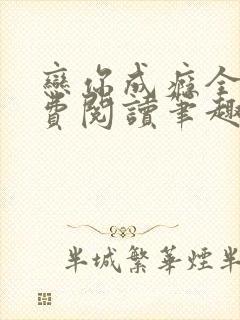 戀你成癮全
費閱讀筆趣
半城繁華煙半